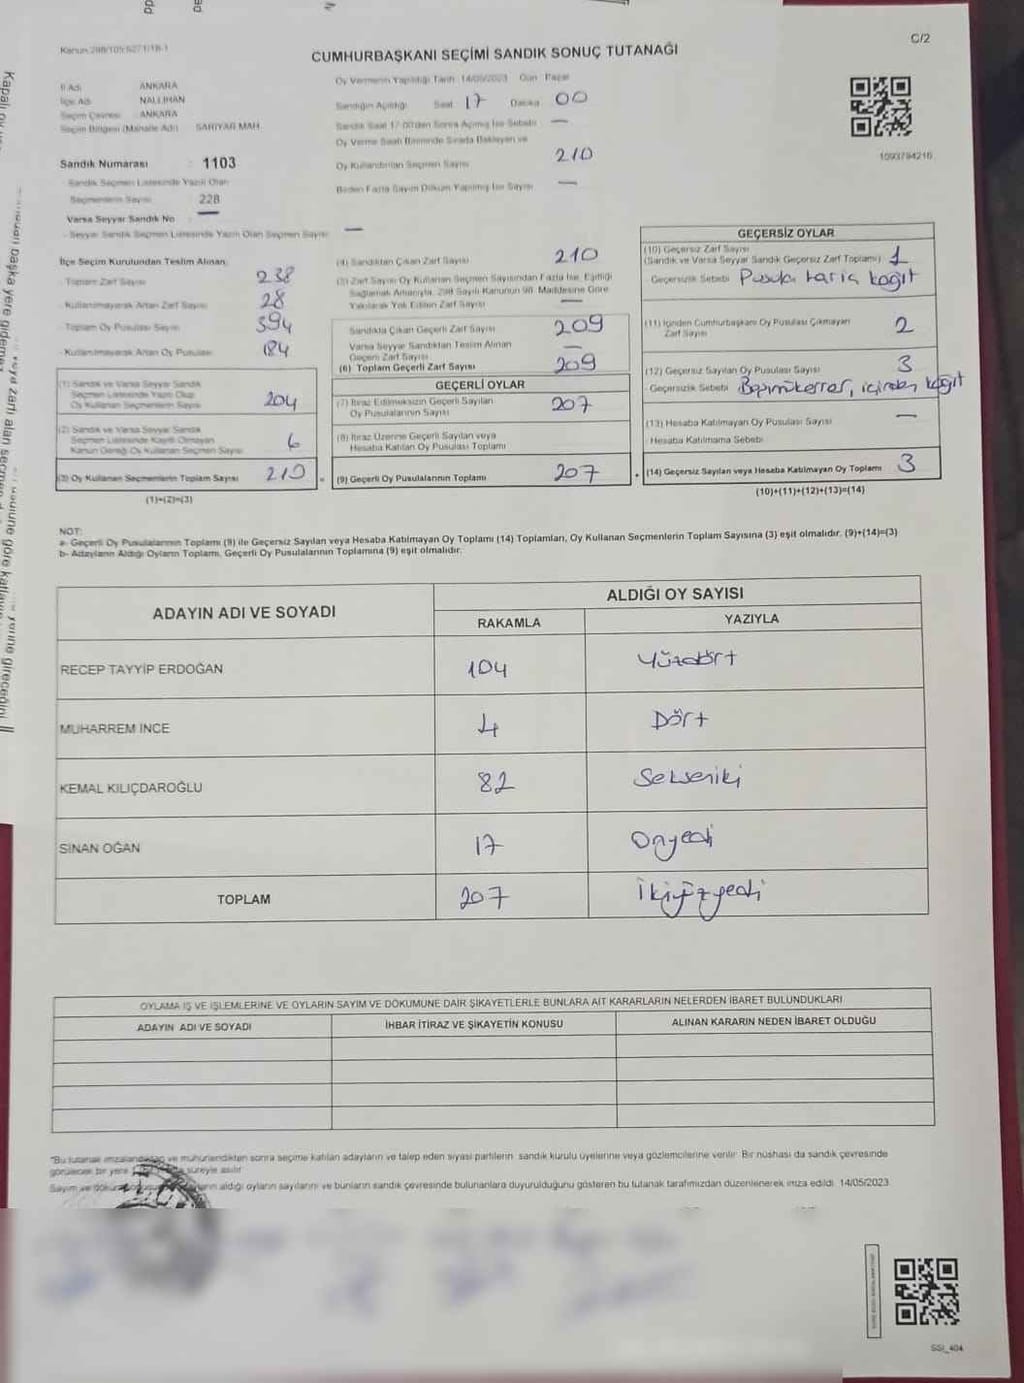 Kanun:298/105-6271/18-1
C/2
CUMHURBAŞKANI SEÇİMİ SANDIK SONUÇ TUTANAĞI
İl Adı ANKARA
İlçe Adı NALLIHAN
Seçim Çevresi ANKARA
Seçim Bölgesi (Mahalle Adı) SARIYAR MAH.
Sandık Numarası : 1103
Sandık Seçmen Listesinde Yazılı Olan
Seçmenlerin Sayısı 228
Varsa Seyyar Sandık No —
- Seyyar Sandık Seçmen Listesinde Yazılı Olan Seçmen Sayısı —
Oy Vermenin Yapıldığı Tarih 14/05/2023 Gün Pazar
Sandığın Açıldığı Saat 17 Dakika 00
Sandık Saat 17:00'den Sonra Açılmış İse Sebebi —
Oy Verme Saati Bitiminde Sırada Bekleyen ve
Oy Kullandırılan Seçmen Sayısı 210
Birden Fazla Sayım Döküm Yapılmış İse Sayısı —
1093794216
İlçe Seçim Kurulundan Teslim Alınan;
- Toplam Zarf Sayısı 238
- Kullanılmayarak Artan Zarf Sayısı 28
- Toplam Oy Pusulası Sayısı 394
- Kullanılmayarak Artan Oy Pusulası 184
(1) Sandık ve Varsa Seyyar Sandık
Seçmen Listesinde Yazılı Olup
Oy Kullanan Seçmenlerin Sayısı 204
(2) Sandık ve Varsa Seyyar Sandık
Seçmen Listesinde Kayıtlı Olmayan
Kanun Gereği Oy Kullanan Seçmen Sayısı 6
(3) Oy Kullanan Seçmenlerin Toplam Sayısı 210
(1)+(2)=(3)
(4) Sandıktan Çıkan Zarf Sayısı 210
(5) Zarf Sayısı Oy Kullanan Seçmen Sayısından Fazla İse, Eşitliği
Sağlamak Amacıyla, 298 Sayılı Kanunun 98. Maddesine Göre
Yakılarak Yok Edilen Zarf Sayısı —
Sandıkta Çıkan Geçerli Zarf Sayısı 209
Varsa Seyyar Sandıktan Teslim Alınan
Geçerli Zarf Sayısı —
(6) Toplam Geçerli Zarf Sayısı 209
GEÇERLİ OYLAR
(7) İtiraz Edilmeksizin Geçerli Sayılan
Oy Pusulalarının Sayısı 207
(8) İtiraz Üzerine Geçerli Sayılan veya
Hesaba Katılan Oy Pusulası Toplamı
(9) Geçerli Oy Pusulalarının Toplamı 207
GEÇERSİZ OYLAR
(10) Geçersiz Zarf Sayısı
(Sandık ve Varsa Seyyar Sandık Geçersiz Zarf Toplamı) 1
Geçersizlik Sebebi Pusula hariç kağıt
(11) İçinden Cumhurbaşkanı Oy Pusulası Çıkmayan
Zarf Sayısı 2
(12) Geçersiz Sayılan Oy Pusulası Sayısı 3
- Geçersizlik Sebebi içinden kağıt
(13) Hesaba Katılmayan Oy Pusulası Sayısı —
- Hesaba Katılmama Sebebi
(14) Geçersiz Sayılan veya Hesaba Katılmayan Oy Toplamı 3
(10)+(11)+(12)+(13)=(14)
NOT:
a- Geçerli Oy Pusulalarının Toplamı (9) ile Geçersiz Sayılan veya Hesaba Katılmayan Oy Toplamı (14) Toplamları, Oy Kullanan Seçmenlerin Toplam Sayısına (3) eşit olmalıdır. (9)+(14)=(3)
b- Adayların Aldığı Oyların Toplamı, Geçerli Oy Pusulalarının Toplamına (9) eşit olmalıdır.
ADAYIN ADI VE SOYADI ALDIĞI OY SAYISI
RAKAMLA YAZIYLA
RECEP TAYYİP ERDOĞAN 104 Yüzdört
MUHARREM İNCE 4 Dört
KEMAL KILIÇDAROĞLU 82 Sekseniki
SİNAN OĞAN 17 Onyedi
TOPLAM 207 İkiyüzyedi
OYLAMA İŞ VE İŞLEMLERİNE VE OYLARIN SAYIM VE DÖKÜMÜNE DAİR ŞİKAYETLERLE BUNLARA AİT KARARLARIN NELERDEN İBARET BULUNDUKLARI
ADAYIN ADI VE SOYADI İHBAR İTİRAZ VE ŞİKAYETİN KONUSU ALINAN KARARIN NEDEN İBARET OLDUĞU
"Bu tutanak imzalandıktan ve mühürlendikten sonra seçime katılan adayların ve talep eden siyasi partilerin sandık kurulu üyelerine veya gözlemcilerine verilir. Bir nüshası da sandık çevresinde
görülecek bir yere süreyle asılır.
Sayım ve aldığı oyların sayılarını ve bunların sandık çevresinde bulunanlara duyurulduğunu gösteren bu tutanak tarafımızdan düzenlenerek imza edildi. 14/05/2023
SSI_404